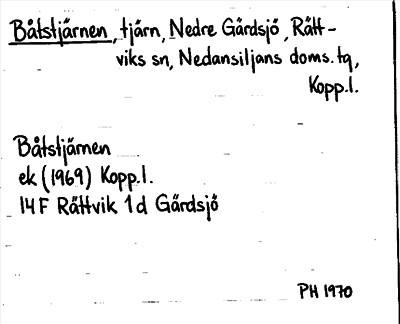 Båtstjärnen, tjärn, Nedre Gärdsjö, Rätt-
viks sn, Nedansiljans doms. tg,
Kopp.l.
Båtstjärnen
ek (1969) Kopp.l.
14F Rättvik 1d Gärdsjö
PH 1970